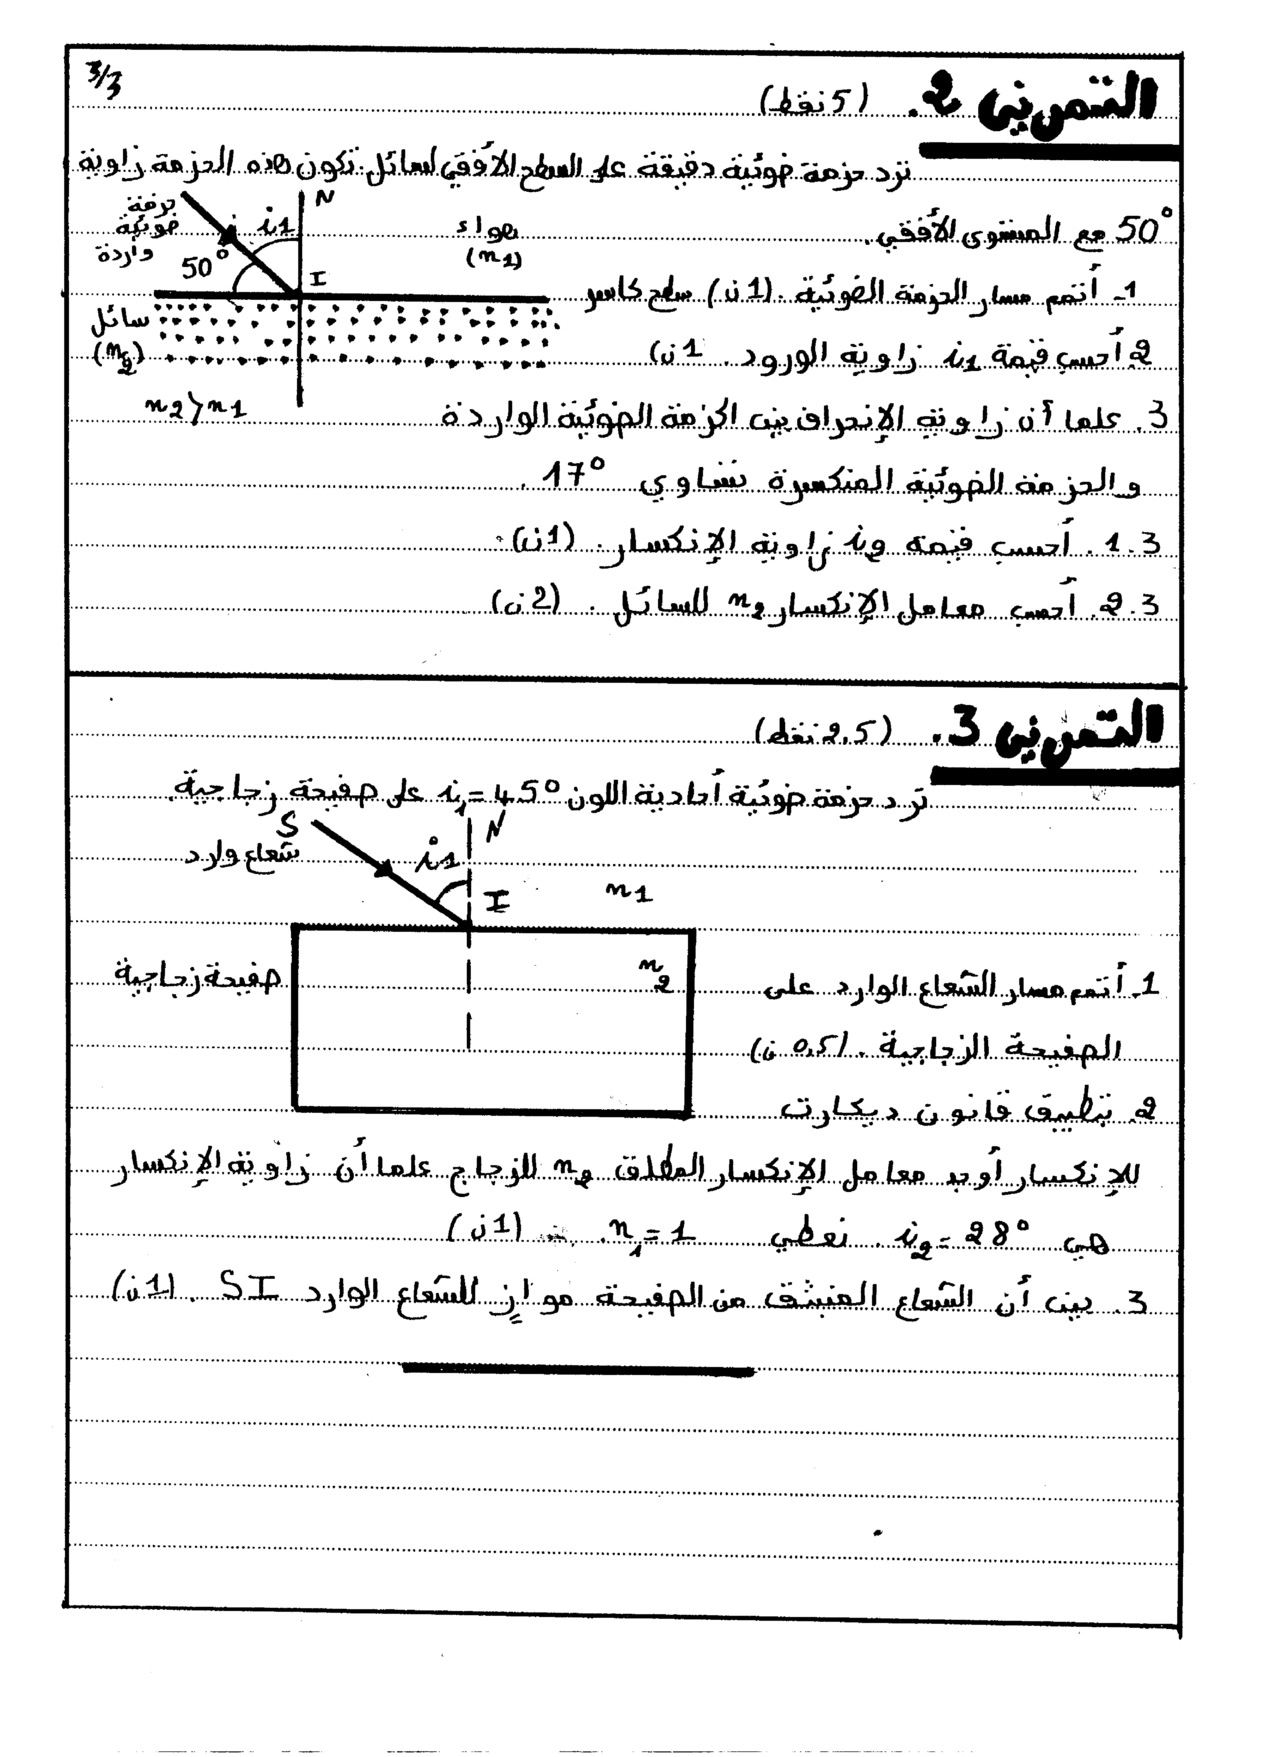 3/3
التمرين 2. (5 نقط)
ترد حزمة ضوئية دقيقة على السطح الأفقي لسائل. تكون هذه الحزمة زاوية
50° مع المستوى الأفقي.
حزمة ضوئية واردة
i1
N
50°
I
هواء
(n1)
سائل
(n2)
n2>n1
1_ أتمم مسار الحزمة الضوئية. (1ن) سطح كاسر
2. أحسب قيمة i1 زاوية الورود. 1ن)
3. علما أن زاوية الإنحراف بين الحزمة الضوئية الواردة
والحزمة الضوئية المنكسرة تساوي 17°.
1.3. أحسب قيمة i2 زاوية الإنكسار. (1ن).
2.3. أحسب معامل الإنكسار n2 للسائل. (2ن)
التمرين 3. (2.5 نقط)
ترد حزمة ضوئية أحادية اللون i1=45° على صفيحة زجاجية.
S
N
شعاع وارد
i1
I
n1
n2
صفيحة زجاجية
1. أتمم مسار الشعاع الوارد على
الصفيحة الزجاجية. (0.5 ن)
2. بتطبيق قانون ديكارت
للإنكسار أوجد معامل الإنكسار المطلق n2 للزجاج علما أن زاوية الإنكسار
هي i2=28°. نعطي n1=1. (1ن)
3. بين أن الشعاع المنبثق من الصفيحة موازٍ للشعاع الوارد SI. (1ن)